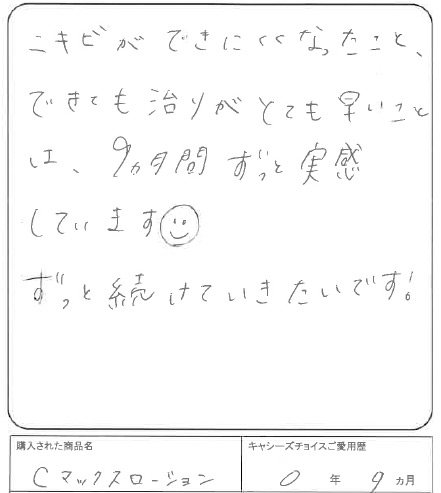 ニキビができにくくなったこと、
できても治りがとても早いこと
は、9ヵ月間ずっと実感
しています
ずっと続けていきたいです!
購入された商品名
Cマックスローション
キャシーズチョイスご愛用歴
0年9ヵ月